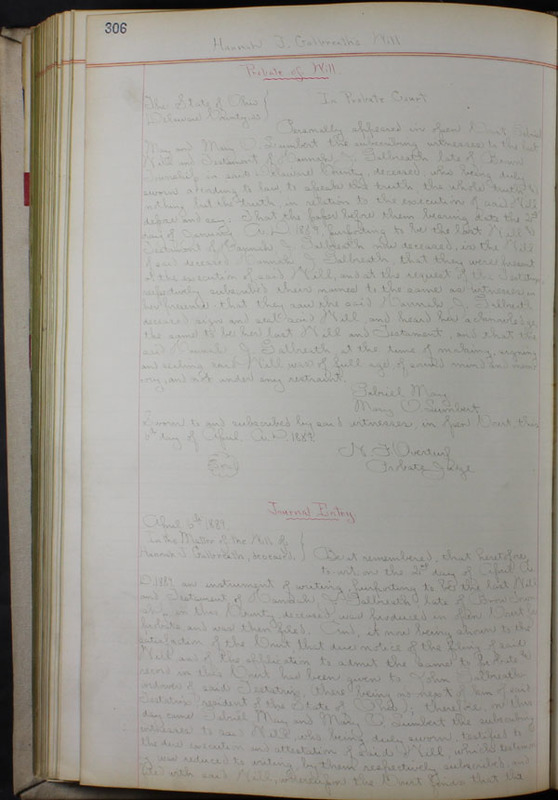 306
Hannah J. Galbreaths Will
Probate of Will
The State of Ohio
Delaware County, ss
In Probate Court
Personally appeared in open Court Gabriel
May and Mary O. Lumbert the subscribing witnesses to the last
Will and Testament of Hannah J. Galbreath late of
Township in said Delaware County, deceased, who being duly
sworn according to law to speak the truth the whole truth &
nothing but the truth, in relation to the execution of said Will
depose and say: That the paper before them bearing date the 2nd
day of A.D. purporting to be the last Will &
Testament of Hannah J. Galbreath now deceased, is the Will
of said deceased Hannah J. Galbreath, that they were present
at the execution of said Will, and at the request of the Testatrix
respectively subscribed their names to the same as witnesses in
her presence. that they saw the said Hannah J. Galbreath
deceased sign and seal said Will, and heard her acknowledge
the same to be her last Will and Testament, and that the
said Hannah J. Galbreath, at the time of making, signing
and sealing said Will was of full age, of sound mind and mem
ory, and not under any restraint.
Gabriel May
Mary O. Lumbert
Sworn to and subscribed by said witnesses, in open Court, this
5th day of April A.D. 1889.
Seal
N. F. Overturf
Probate Judge
Journal Entry
April 5th 1889
In the Matter of the Will of
Hannah J. Galbreath, deceased.
Be it remembered, that heretofore,
to wit on the 2nd day of April A.
D. 1889. an instrument of writing, purporting to be the last Will
and Testament of Hannah J. Galbreath late of
ship, in this County, deceased, was produced in open Court for
probate and was then filed. And, it now being shown to the
satisfaction of the Court that due notice of the filing of said
Will and of the application to admit the same to probate &
record in this Court had been given to John Galbreath
widower of said Testatrix, (there being no next of kin of said
Testatrix resident of the State of Ohio), therefore, on this
day came Gabriel May and Mary O. Lumbert the subscribing
witnesses to said Will, who being duly sworn, testified to
the due execution and attestation of said Will, which testimo
ny was reduced to writing, by them respectively subscribed, and
filed with said Will, whereupon the Court finds that the